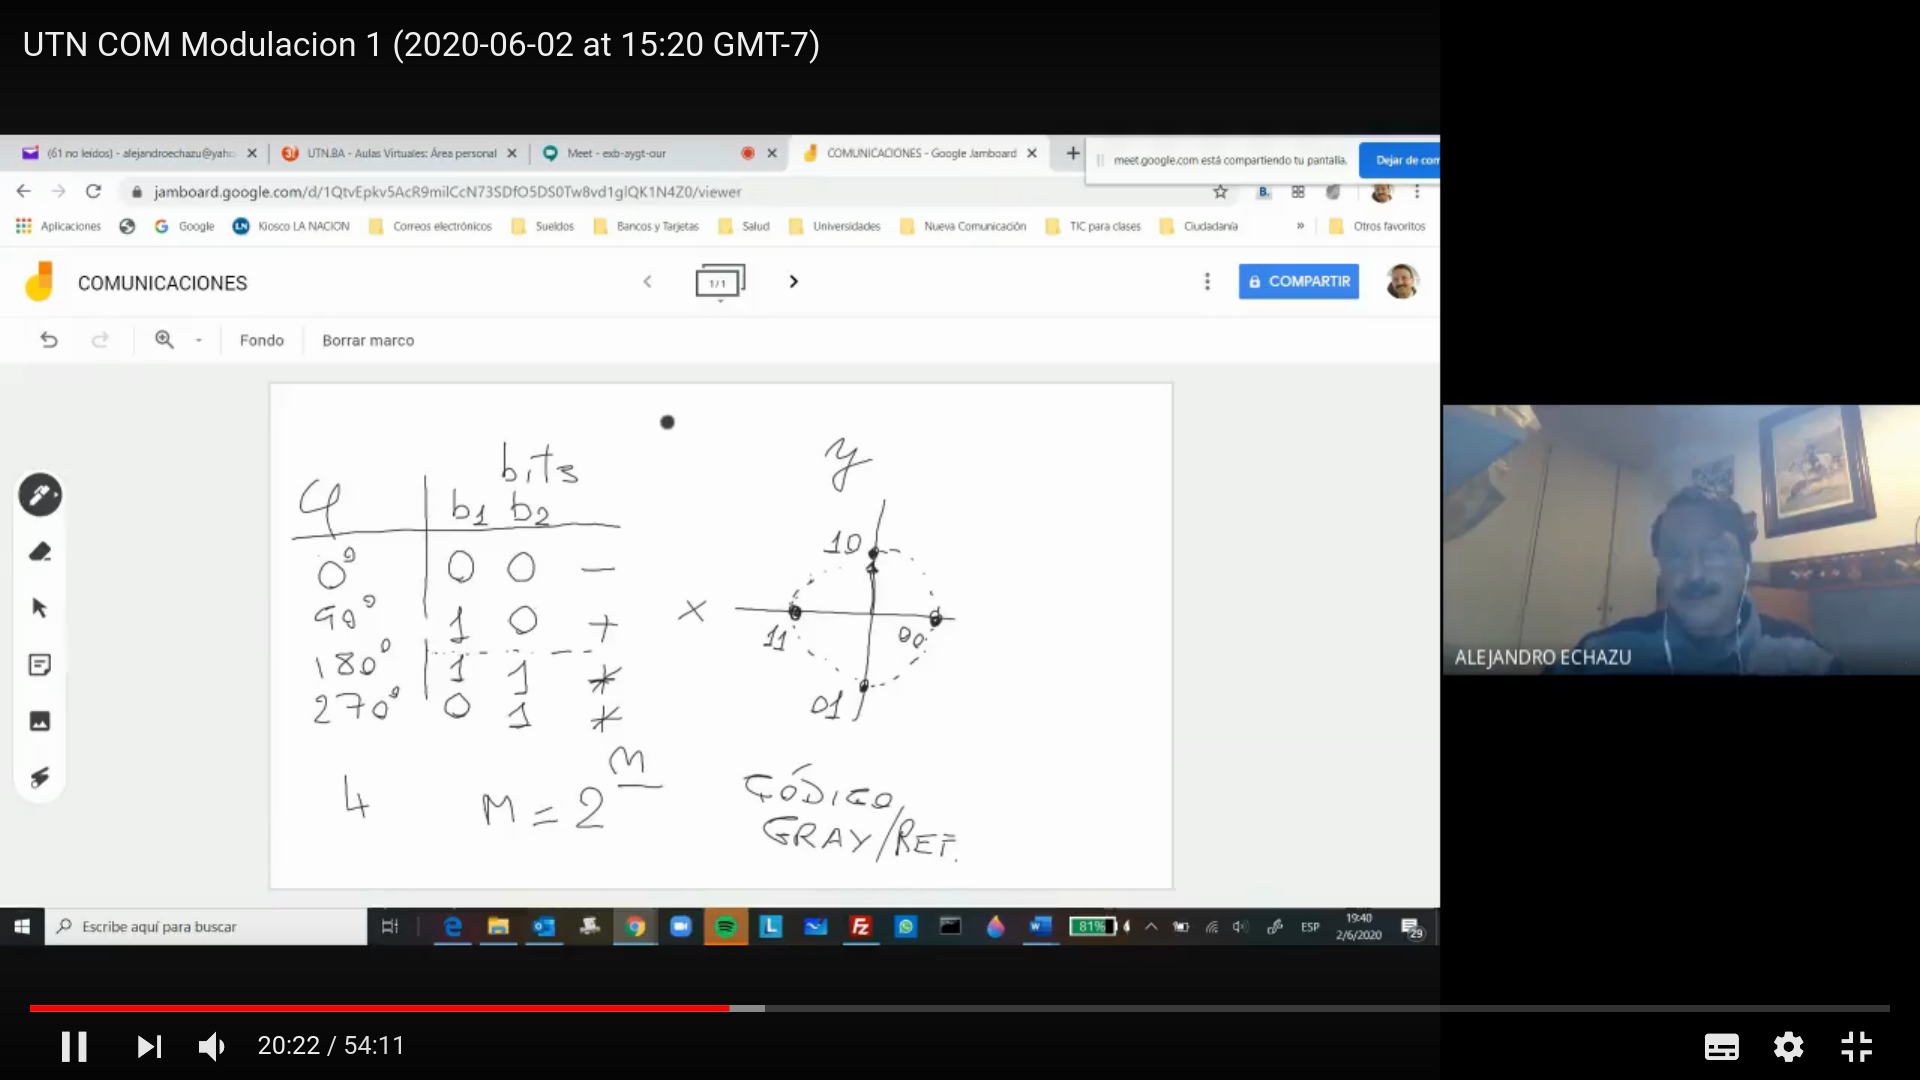 UTN COM Modulacion 1 (2020-06-02 at 15:20 GMT-7)
(61 no leídos) - alejandroechazu@yaho
UTN.BA - Aulas Virtuales: Área personal
Meet - exb-aygt-our
COMUNICACIONES - Google Jamboard
meet.google.com está compartiendo tu pantalla.
Dejar de com
jamboard.google.com/d/1QtvEpkv5AcR9milCcN73SDfO5DS0Tw8vd1glQK1N4Z0/viewer
Aplicaciones
Google
Kiosco LA NACION
Correos electrónicos
Sueldos
Bancos y Tarjetas
Salud
Universidades
Nueva Comunicación
TIC para clases
Ciudadanía
»
Otros favoritos
COMUNICACIONES
1/1
COMPARTIR
Fondo
Borrar marco
bits
φ b1 b2
0° 0 0 —
90° 1 0 +
180° 1 1 *
270° 0 1 *
4 M = 2^M
y
10
x
11 00
01
CÓDIGO
GRAY/REF.
ALEJANDRO ECHAZU
Escribe aquí para buscar
81%
ESP
19:40
2/6/2020
29
20:22 / 54:11